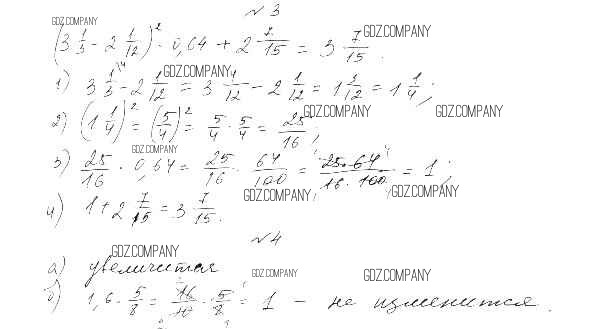 № 3
GDZ.COMPANY
(3 1/3 - 2 1/12)² · 0,64 + 2 7/15 = 3 7/15. GDZ.COMPANY
1) 3 1/3 - 2 1/12 = 3 4/12 - 2 1/12 = 1 3/12 = 1 1/4; GDZ.COMPANY
2) (1 1/4)² = (5/4)² = 5/4 · 5/4 = 25/16; GDZ.COMPANY GDZ.COMPANY
GDZ.COMPANY
3) 25/16 · 0,64 = 25/16 · 64/100 = 25·64/16·100 = 1;
GDZ.COMPANY GDZ.COMPANY
4) 1 + 2 7/15 = 3 7/15.
№ 4
GDZ.COMPANY
а) увеличится
GDZ.COMPANY GDZ.COMPANY
б) 1,6 · 5/8 = 16/10 · 5/8 = 1 — не изменится.